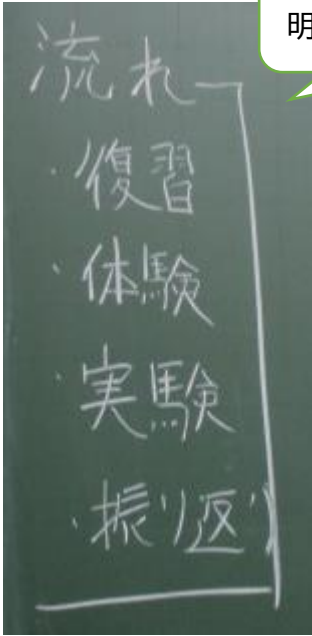 明
流れ
・復習
・体験
・実験
・振り返り